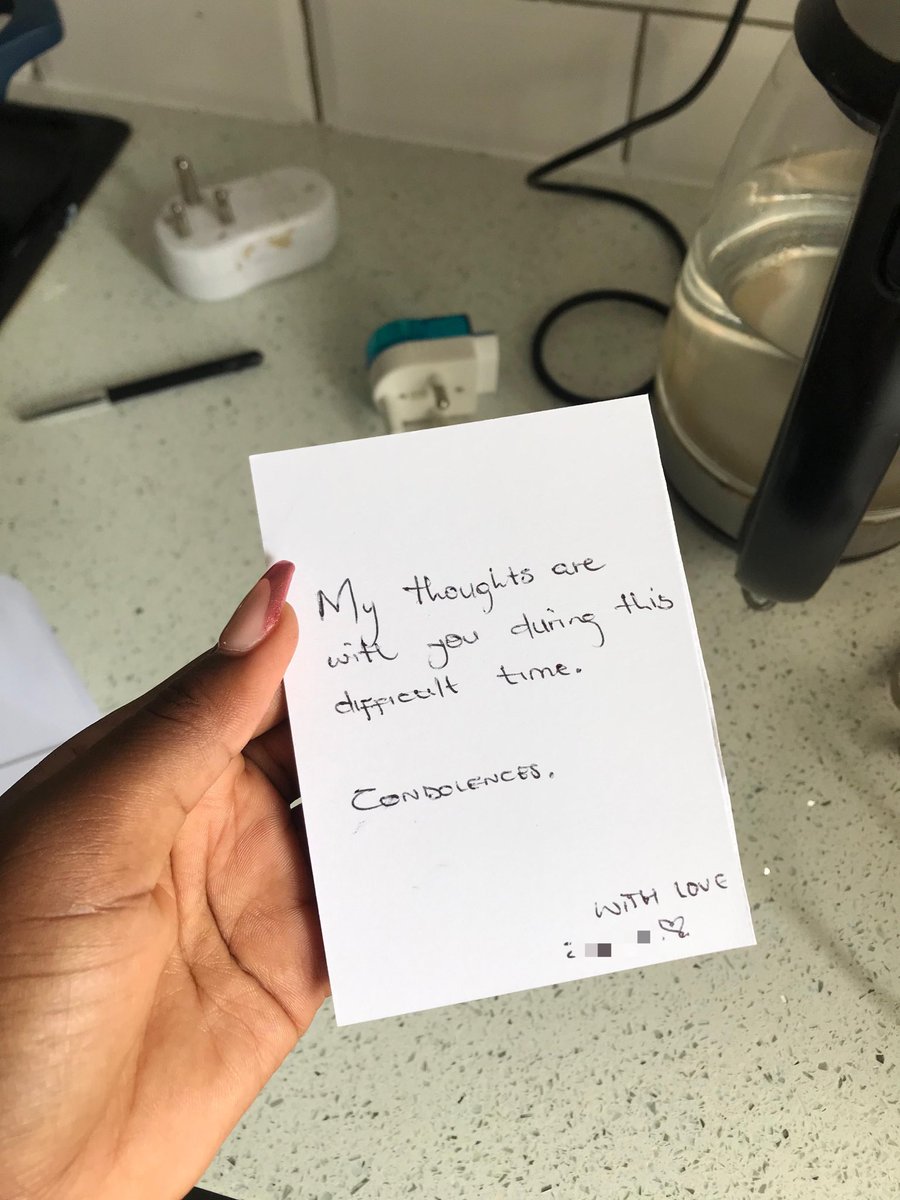 My thoughts are
with you during this
difficult time.
CONDOLENCES.
WITH LOVE